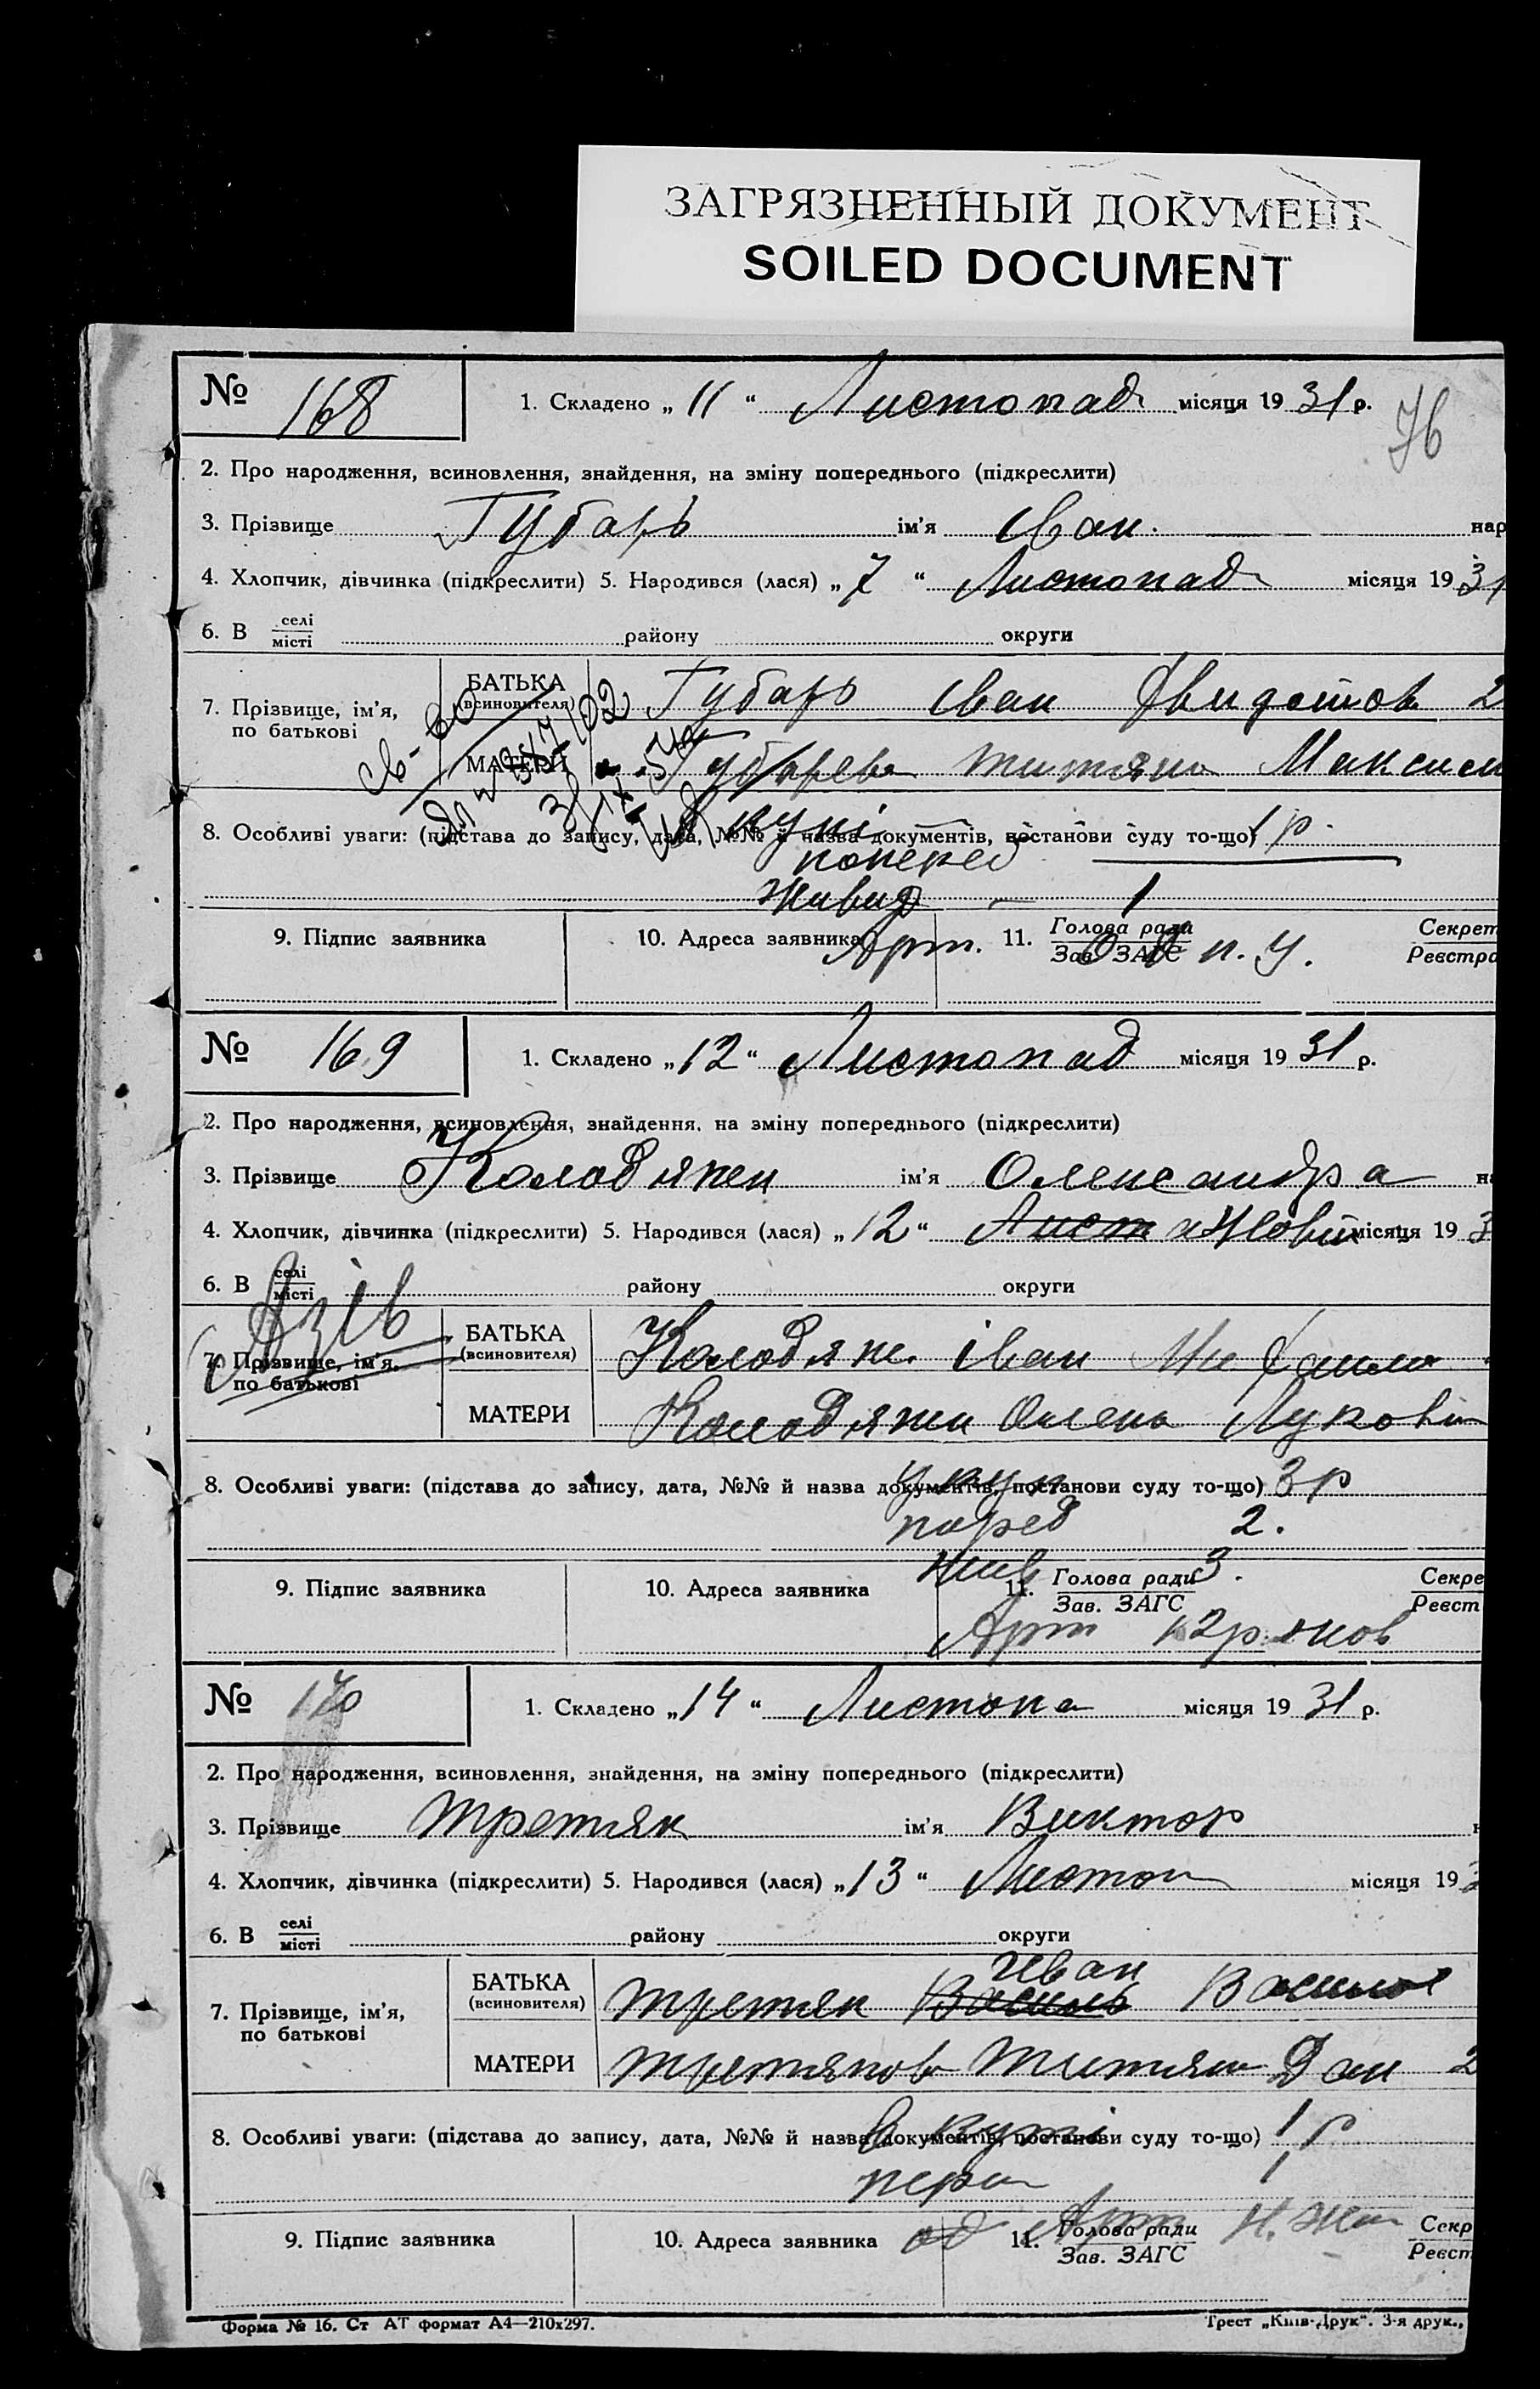 ЗАГРЯЗНЕННЫЙ ДОКУМЕНТ
SOILED DOCUMENT
№ 168
1. Складено „ 11 “ Листопад місяця 19 31 р.
76
2. Про народження, всиновлення, знайдення, на зміну попереднього (підкреслити)
3. Прізвище Губарь ім’я Іван. нар
4. Хлопчик, дівчинка (підкреслити) 5. Народився (лася) „ 7 “ Листопад місяця 19 31
6. В селі місті району округи
7. Прізвище, ім’я, по батькові
БАТЬКА (всиновителя) Губарь Іван 2
МАТЕРИ Губарева Титяна Максим
8. Особливі уваги: (підстава до запису, дата, №№ й назва документів, постанови суду то-що) 1 р.
вкупі
поперед
Живид — 1
9. Підпис заявника
10. Адреса заявника
Арт.
11. Голова ради
Зав. ЗАГС
п. у.
Секрет
Реєстра
№ 169
1. Складено „ 12 “ Листопад місяця 19 31 р.
2. Про народження, всиновлення, знайдення, на зміну попереднього (підкреслити)
3. Прізвище Колодяжен ім’я Олександра на
4. Хлопчик, дівчинка (підкреслити) 5. Народився (лася) „ 12 “ Лист Жовт місяця 19 3
6. В селі місті району округи
7. Прізвище, ім’я, по батькові
БАТЬКА (всиновителя) Колодяж. Іван Михаило
МАТЕРИ Колодяжн Олена Луковн
8. Особливі уваги: (підстава до запису, дата, №№ й назва документів, постанови суду то-що) 3 р
поред 2.
жив 3.
9. Підпис заявника
10. Адреса заявника
11. Голова ради
Зав. ЗАГС
Секре
Реєст
Арт
№ 170
1. Складено „ 14 “ Листопа місяця 19 31 р.
2. Про народження, всиновлення, знайдення, на зміну попереднього (підкреслити)
3. Прізвище Третяк ім’я Виктор н
4. Хлопчик, дівчинка (підкреслити) 5. Народився (лася) „ 13 “ Листоп місяця 19 3
6. В селі місті району округи
7. Прізвище, ім’я, по батькові
Иван
БАТЬКА (всиновителя) Третяк Василь Василов
МАТЕРИ Третякова Титяна Дан 2
8. Особливі уваги: (підстава до запису, дата, №№ й назва документів, постанови суду то-що) 1 р
вкупі
пера 1
9. Підпис заявника
10. Адреса заявника
11. Голова ради
Зав. ЗАГС
Арт
Секр
Реєст
Форма № 16. Ст АТ формат А4—210х297.
Трест „Київ-Друк“. 3-я друк.,